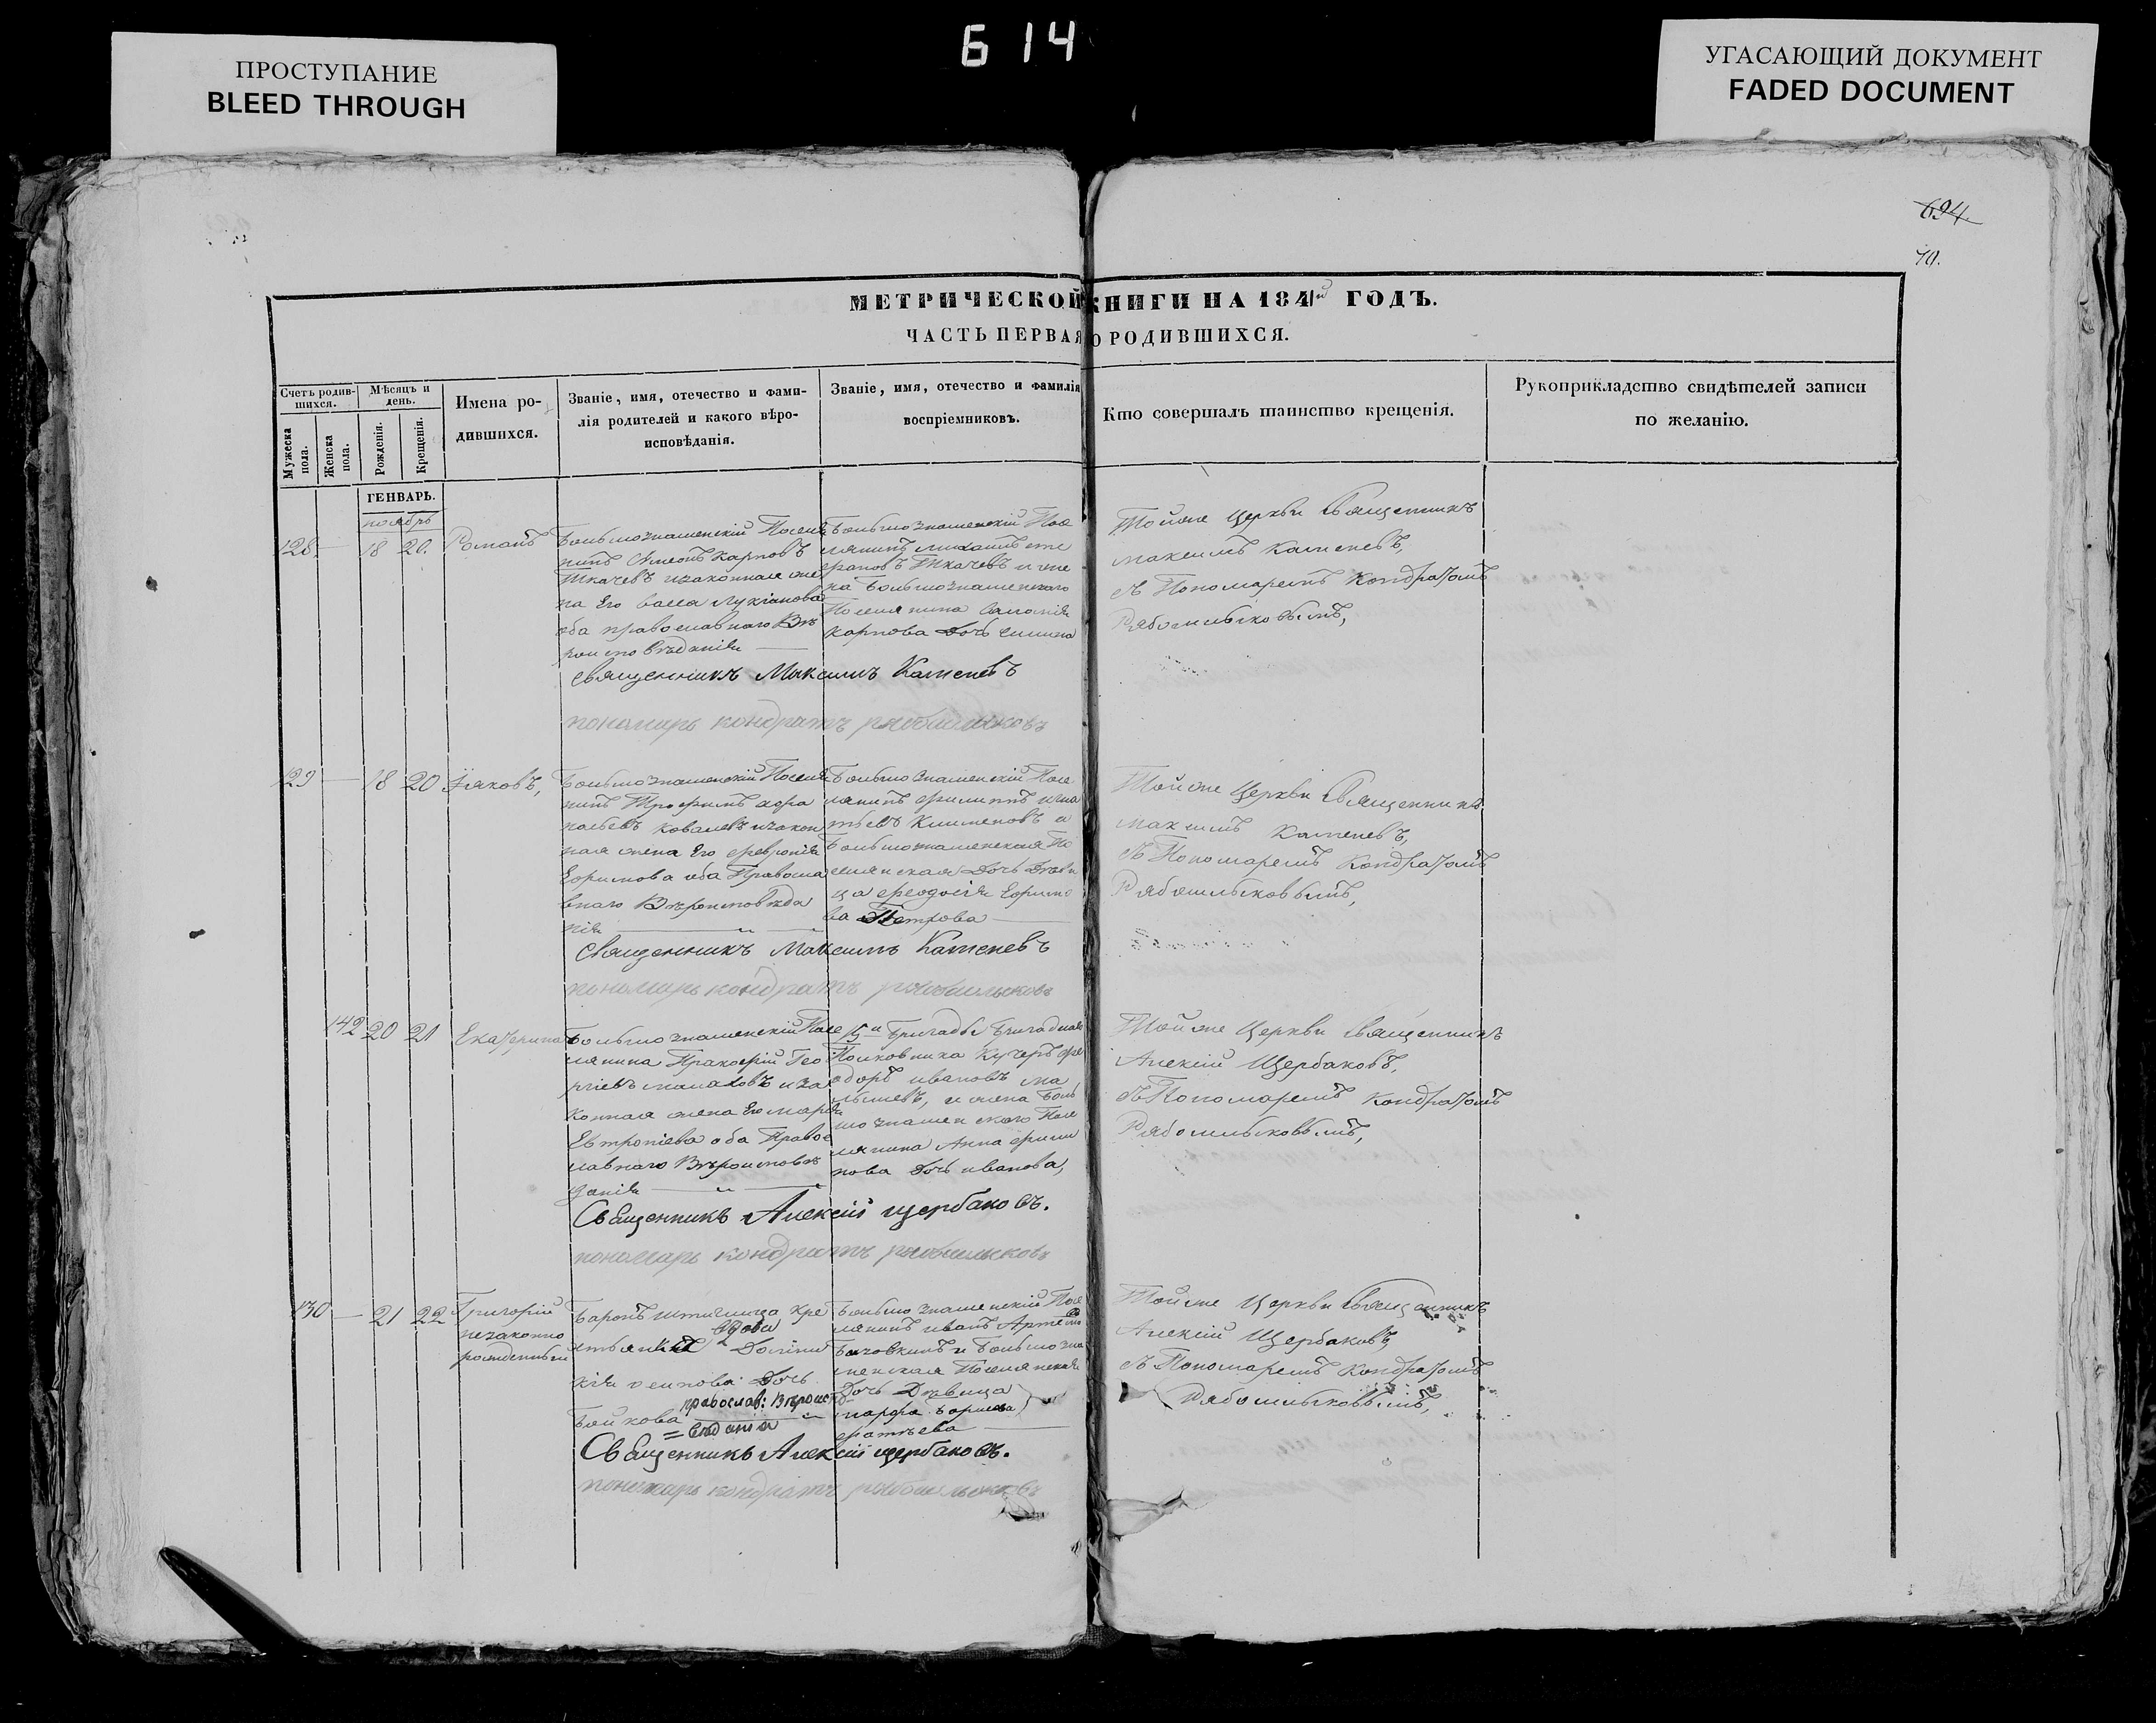 Б 14
ПРОСТУПАНИЕ
BLEED THROUGH
УГАСАЮЩИЙ ДОКУМЕНТ
FADED DOCUMENT
694.
70.
МЕТРИЧЕСКОЙ КНИГИ НА 1841й ГОДЪ.
ЧАСТЬ ПЕРВАЯ О РОДИВШИХСЯ.
Счетъ родив-
шихся.
Мужеска
пола.
Женска
пола.
Мѣсяцъ и
день.
Рожденія.
Крещенія.
Имена ро-
дившихся.
Званіе, имя, отечество и фами-
лія родителей и какого вѣро-
исповѣданія.
Званіе, имя, отечество и фамилія
воспріемниковъ.
Кто совершалъ таинство крещенія.
Рукоприкладство свидѣтелей записи
по желанію.
ГЕНВАРЬ.
ноябрь
128 — 18 20. Романъ
Большознаменскій Поселя
нинъ Симеонъ Карповъ
Ткачевъ и законная же
на Его Васса Лукіанова
оба православнаго Вѣ
роисповѣданія
Большознаменскій Посе
лянинъ Михаилъ сте
фановъ Ткачевъ и же
на Большознаменскаго
Поселянина
Карпова Дочь
Тойже Церкви Священникъ
Максимъ Каменевъ,
съ Пономаремъ Кондратомъ
Рябошлыковымъ,
священникъ Максимъ Каменевъ
пономарь кондратъ рябошлыковъ
129 — 18 20 Іяковъ,
Большознаменскій Поселя
нинъ Трофимъ Афа
насьевъ Ковалевъ и закон
ная жена Его Февронія
Ефимова оба Правосла
внаго Вѣроисповѣда
нія
Большознаменскій Посе
лянинъ Филиппъ Игна
тьевъ Клименовъ и
Большознаменская По
селянская Дочь Дѣви
ца Феодосія Ефимо
ва Петрова
Тойже Церкви Священникъ
Максимъ Каменевъ,
съ Пономаремъ Кондратомъ
Рябошлыковымъ,
священникъ Максимъ Каменевъ
пономарь кондратъ рябошлыковъ
142 20 21 Екатерина
Большознаменскій Посе
лянинъ Прокофій Гео
ргіевъ Малаховъ и за
конная жена Его Марѳа
Евтропіева оба Правос
лавнаго Вѣроисповѣ
данія
15й Бригады Бригаднаго
Полковника Кучеръ Фе
одоръ Ивановъ Ма
лышевъ, и жена Боль
шознаменскаго Посе
лянина Анна Фили
пова Дочь Иванова,
Тойже Церкви Священникъ
Алексій Щербаковъ,
съ Пономаремъ Кондратомъ
Рябошлыковымъ,
Священникъ Алексій Щербаковъ.
пономарь кондратъ рябошлыковъ
130 — 21 22 Григорій
незаконно
рожденный
Баронъ Штиглица кре
стьянка вдова
Дочь
Бойкова православ: Вѣроиспо
= вѣданія
Большознаменскій Посе
лянинъ Иванъ Артемо
и Большозна
менская Поселянская
Дочь Дѣвица
Марфа Борисова
Тойже Церкви Священникъ
Алексій Щербаковъ
съ Пономаремъ Кондратомъ
Рябошлыковымъ,
Священникъ Алексій Щербаковъ.
пономарь кондратъ рябошлыковъ